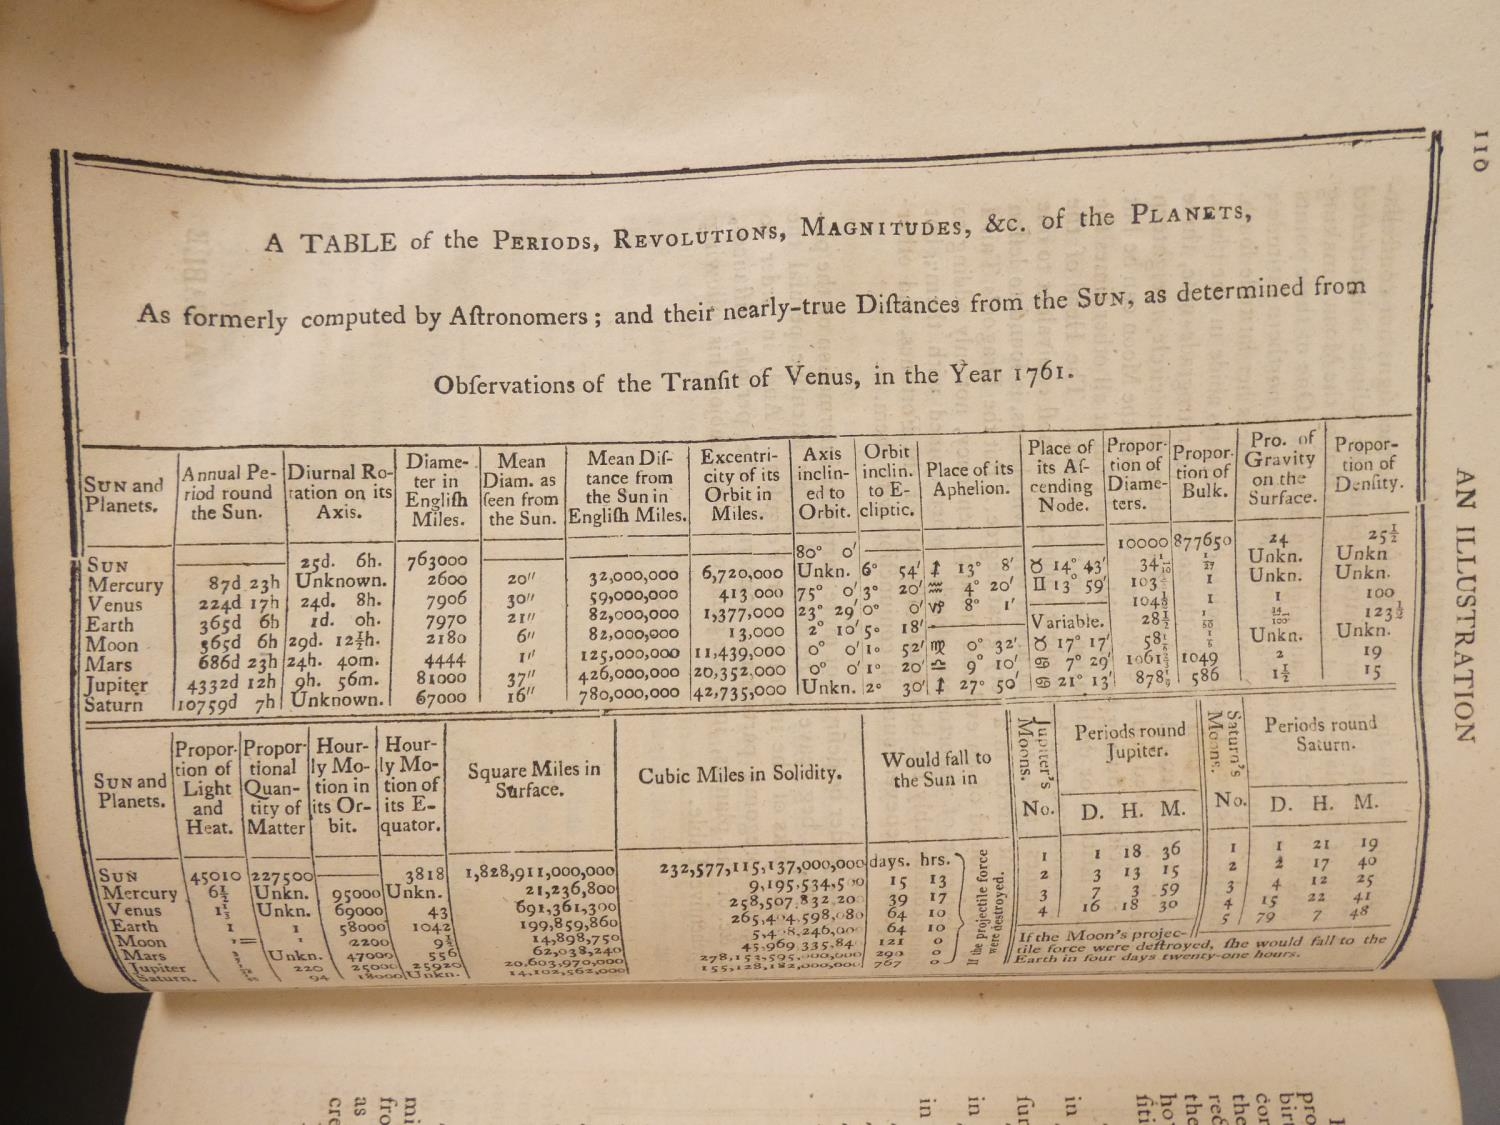 110
AN ILLUSTRATION
A TABLE of the PERIODS, REVOLUTIONS, MAGNITUDES, &c. of the PLANETS,
As formerly computed by Aſtronomers; and their nearly-true Diſtances from the SUN, as determined from
Obſervations of the Tranſit of Venus, in the Year 1761.
SUN and Planets. | Annual Period round the Sun. | Diurnal Rotation on its Axis. | Diameter in Engliſh Miles. | Mean Diam. as ſeen from the Sun. | Mean Diſtance from the Sun in Engliſh Miles. | Excentricity of its Orbit in Miles. | Axis inclined to Orbit. | Orbit inclin. to Ecliptic. | Place of its Aphelion. | Place of its Aſcending Node. | Proportion of Diameters. | Proportion of Bulk. | Pro. of Gravity on the Surface. | Proportion of Denſity.
SUN 25d. 6h. 763000 80° 0' 10000 877650 24 25½
Mercury 87d 23h Unknown. 2600 20" 32,000,000 6,720,000 Unkn. 6° 54' ♐ 13° 8' ♉ 14° 43' Unkn. Unkn
Venus 224d 17h 24d. 8h. 7906 30" 59,000,000 413 000 75° 0' 3° 20' ♒ 4° 20' ♊ 13° 59' 1 Unkn. Unkn.
Earth 365d 6h 1d. 0h. 7970 21" 82,000,000 1,377,000 23° 29' 0° 0' ♑ 8° 1' 1 1 100
Moon 365d 6h 29d. 12½h. 2180 6" 82,000,000 13,000 2° 10' 5° 18' Variable. 28½ 123½
Mars 686d 23h 24h. 40m. 4444 11" 125,000,000 11,439,000 0° 0' 1° 52' ♍ 0° 32' ♉ 17° 17' Unkn. Unkn.
Jupiter 4332d 12h 9h. 56m. 81000 37" 426,000,000 20,352,000 0° 0' 1° 20' ♎ 9° 10' ♋ 7° 29' 1049 2 19
Saturn 10759d 7h Unknown. 67000 16" 780,000,000 42,735,000 Unkn. 2° 30' ♐ 27° 50' ♋ 21° 13' 586 1½ 15
SUN and Planets. | Proportion of Light and Heat. | Proportional Quantity of Matter | Hourly Motion in its Orbit. | Hourly Motion of its Equator. | Square Miles in Surface. | Cubic Miles in Solidity. | Would fall to the Sun in
SUN 45010 227500 3818 1,828,911,000,000 232,577,115,137,000,000 days. hrs.
Mercury 6½ Unkn. 95000 Unkn. 21,236,800 15 13
Venus Unkn. 69000 43 691,361,300 39 17
Earth 1 1 58000 1042 199,859,860 64 10
Moon 2200 9½ 14,898,750 64 10
Mars Unkn. 47000 556 62,038,240 121 0
Jupiter 220 25000 25920 20,603,970,000 290 0
Saturn. 94 18000 Unkn. 14,102,562,000 767 0
If the projectile force were deſtroyed.
Jupiter's Moons. No. | Periods round Jupiter. D. H. M.
1 1 18 36
2 3 13 15
3 7 3 59
4 16 18 30
Saturn's Moons. No. | Periods round Saturn. D. H. M.
1 1 21 19
2 2 17 40
3 4 12 25
4 15 22 41
5 79 7 48
If the Moon's projec-
tile force were deſtroyed, ſhe would fall to the
Earth in four days twenty-one hours.